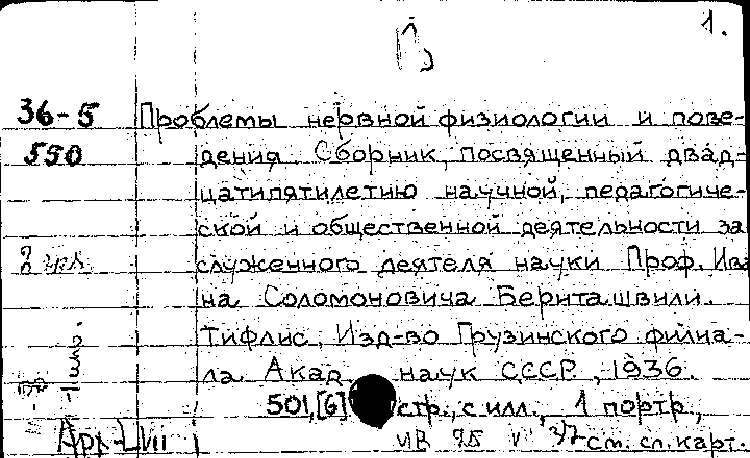 1.
36-5 Проблемы нервной физиологии и пове-
550 дения. Сборник, посвященный двад-
цатипятилетию научной, педагогиче-
ской и общественной деятельности за
служенного деятеля науки Проф. Ива
на Соломоновича Бериташвили.
Тифлис, Изд-во Грузинского филиа-
ла Акад. наук СССР, 1936.
501,[6] стр., с илл., 1 портр.,
см. сл. карт.